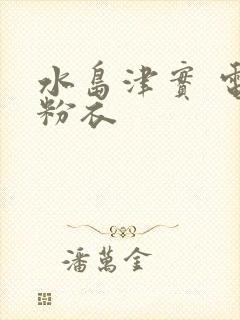 水島津實
粉衣
潘萬金